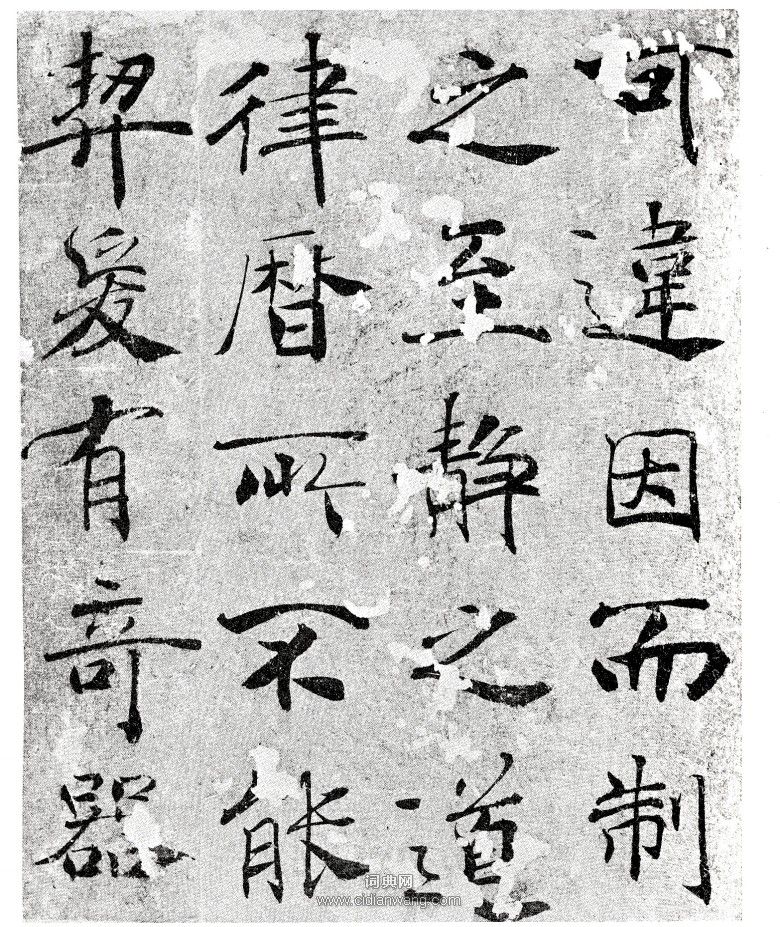 可違因而制
之至静之道
律暦所不能
契爰有竒器
词典网
www.cidianwang.com